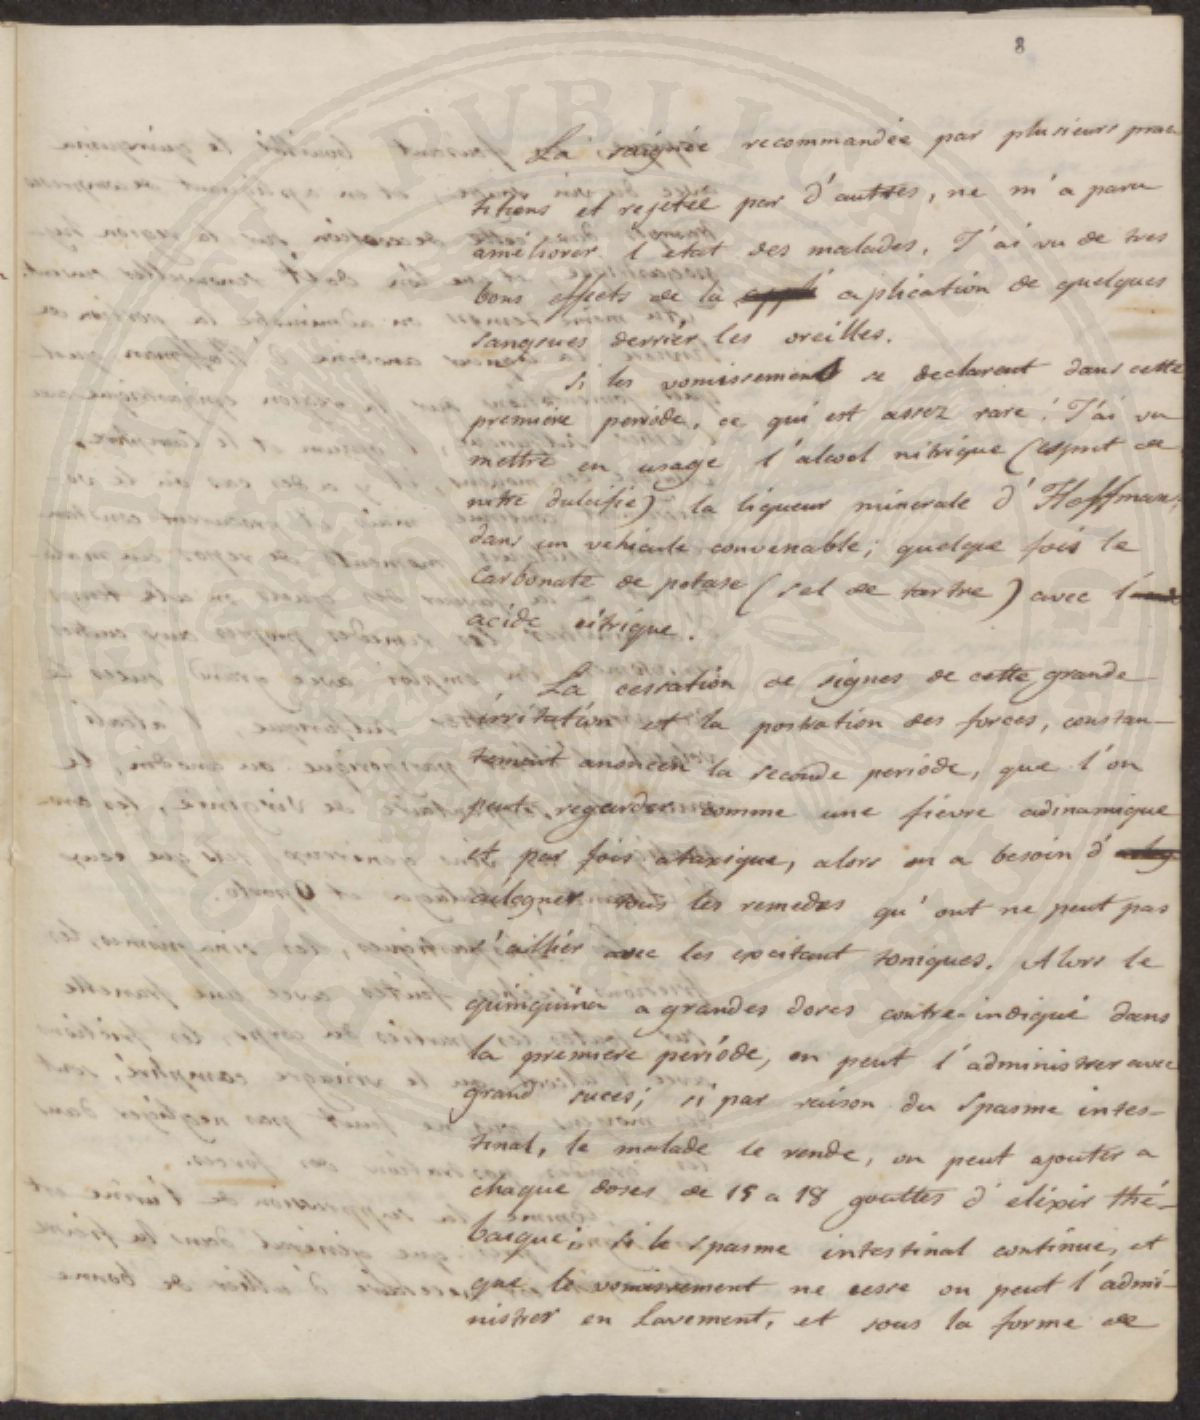 8
La saignée recommandée par plusieurs prac
titiens et rejetée par d'auttes, ne m'a paru
améliorer l'etat des malades. J'ai vu de tres
bons effects de la aplication de quelques
sangsues derrier les oreilles.
Si les vomissement se declarent dans cette
premiere periode, ce qui est assez rare! J'ai vu
mettre en usage l'alcool nitrique (esprit de
nitre dulcifie) la liqueur minerale d'Hoffman,
dans un vehicule convenable; quelque fois le
Carbonate de potase (sel de tartre) avec l'
acide citrique.
La cessation de signes de cette grande
irritation et la postration des forces, constan-
tement anoncen la seconde periode, que l'on
peut regarder comme une fievre adinamique
et par fois ataxique, alors on a besoin d'
eélogner tous les remedes qu'ont ne peut pas
s'aillier avec les excitant toniques. Alors le
quinquina a grandes doses contre-indiqué dans
la premiere periode, on peut l'administrer avec
grand suces; si par raison du spasme intes-
tinal, le malade le rende, on peut ajouter a
chaque doses de 15 a 18 gouttes d'elixir thé-
baique; si le spasme intestinal continue, et
que le vomissement ne cesse on peut l'admi-
nistrer en Lavement, et sous la forme de